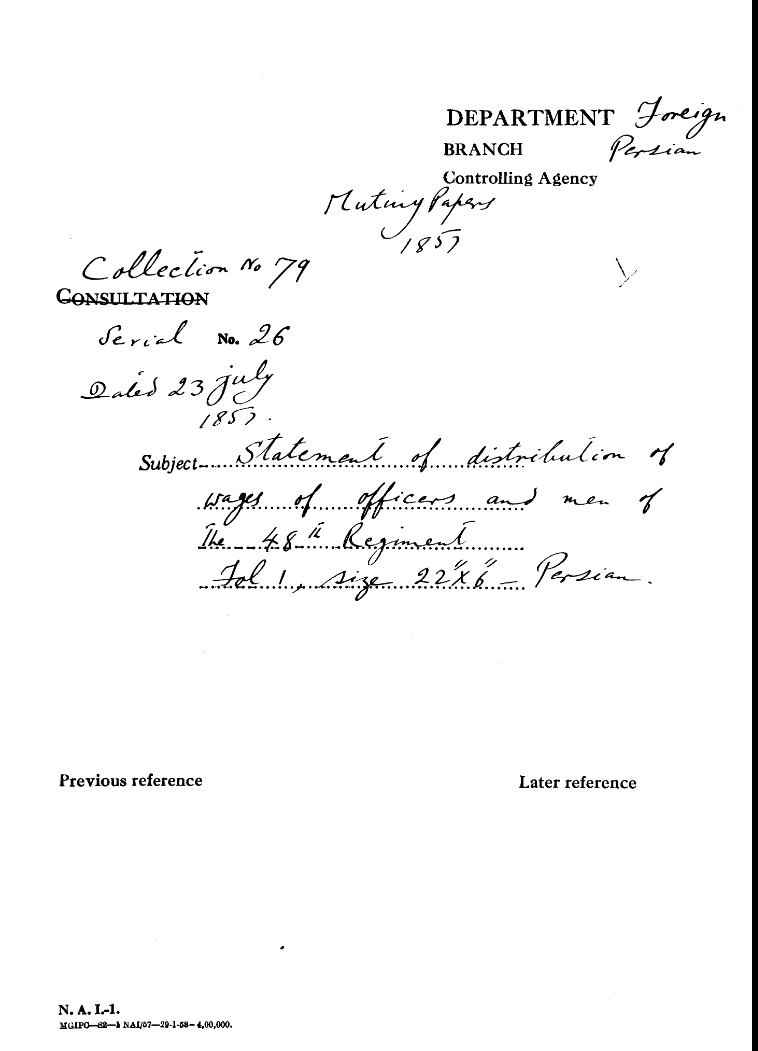 DEPARTMENT Foreign
BRANCH Persian
Controlling Agency
Mutiny Papers
1857
Collection No 79
CONSULTATION
Serial No. 26
Dated 23 july
1857.
Subject Statement of distribution of
wages of officers and men of
The 48th Regiment
Fol 1, size 22"X6" - Persian.
Previous reference
Later reference
N. A. I.-1.
MGIPC—S2—1 NAI/57—29-1-58—4,00,000.